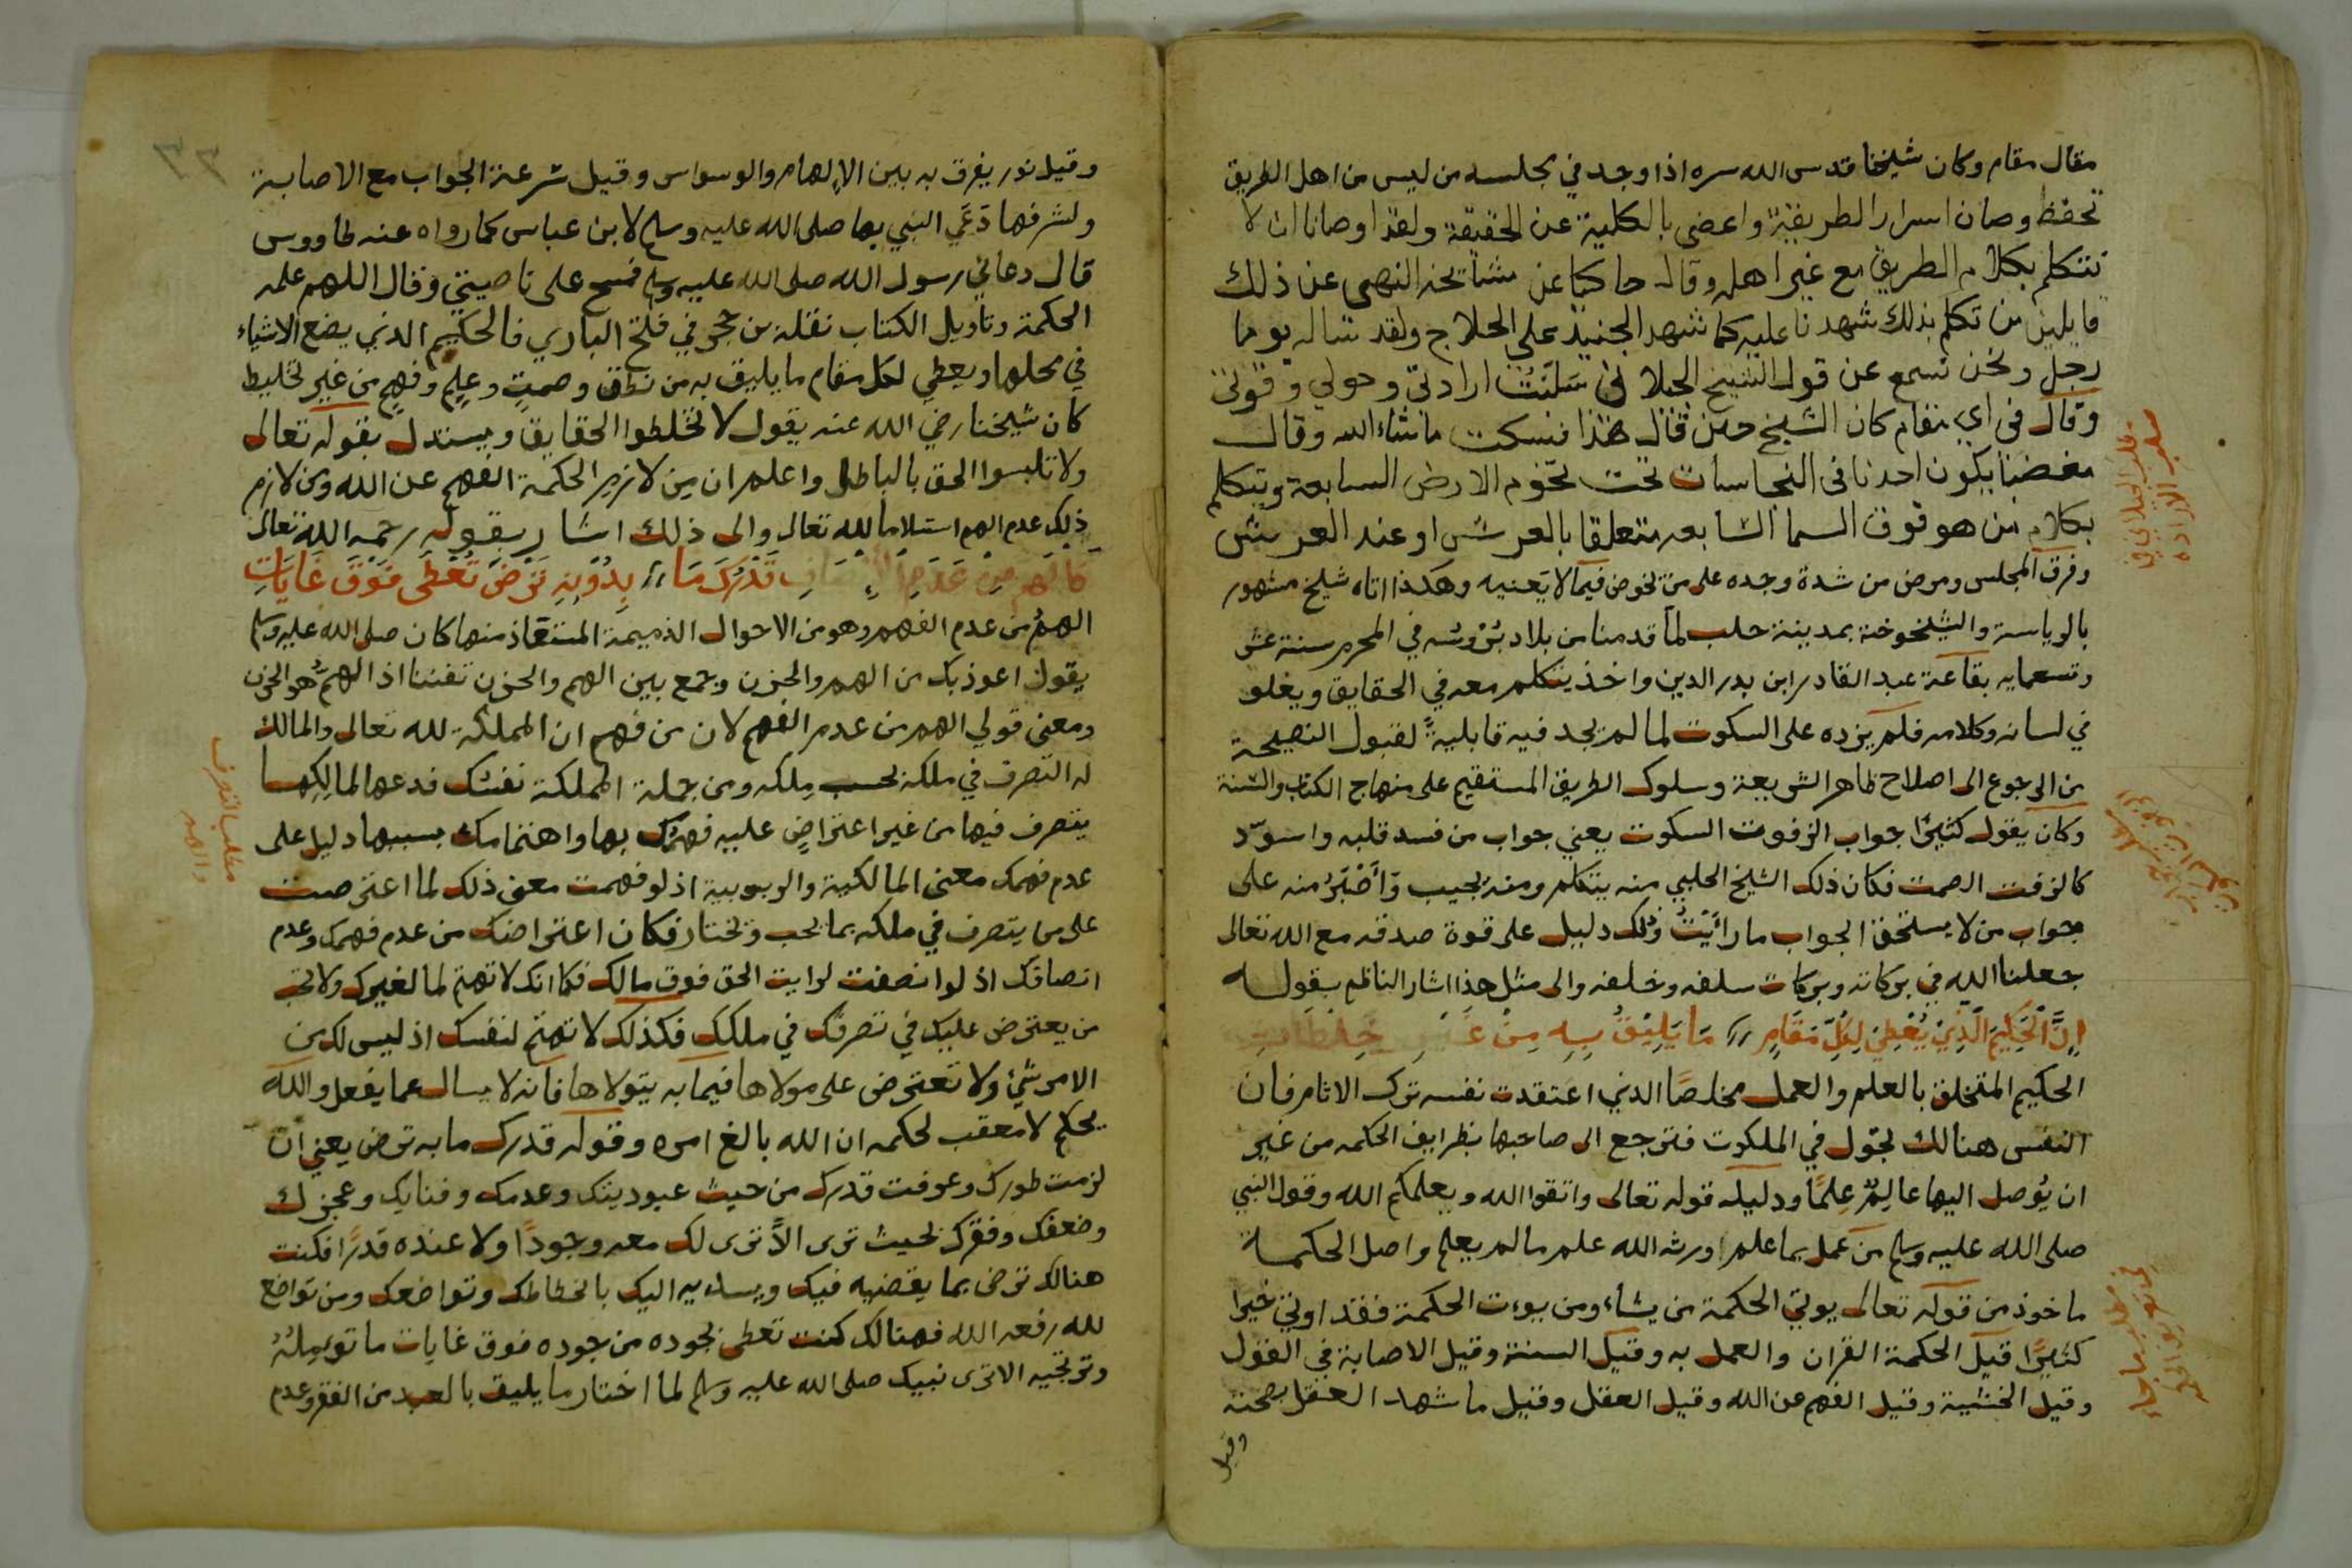 مقال مقام وكان شيخنا قدس الله سره اذا وجد في مجلسه من ليس من اهل الطريق
تحفظ وصان اسرار الطريقة واعضى بالكلية عن الحقيقة ولقد اوصانا ان لا
نتكلم بكلام الطريق مع غير اهله وقال حاكيا عن مشايخه النهى عن ذلك
قايلين من تكلم بذلك شهدنا عليه كما شهد الجنيد على الحلاج ولقد ساله يوما
رجل ونحن نسمع عن قول الشيخ الجلاني سَلَّمْتُ ارادتي وحولي وقوتي
وقال في اي مقام كان الشيخ حين قال هذا فسكت ما شاء الله وقال
مغضبا يكون احدنا في النجاسات تحت تخوم الارض السابعة ويتكلم
بكلام من هو فوق السما السابعه متعلقا بالعرش او عند العرش
وفرق المجلس ومرض من شدة وجده على من تخوض فيما لا يعنيه وهكذا اتاه شيخ مشهور
بالرياسة والشيخوخة بمدينة حلب لما قدمنا من بلاد بروسه في المحرم سنة عشر
وتسعمايه بقاعة عبد القادر ابن بدر الدين واخذ يتكلم معه في الحقايق ويغلو
في لسانه وكلامه فلم يزده على السكوت لما لم يجد فيه قابلية لقبول النصيحة
من الرجوع الى اصلاح ظاهر الشريعة وسلوك الطريق المستقيم على منهاج الكتاب والسنة
وكان يقول كثيرًا جواب الزفوت السكوت يعني جواب من فسد قلبه واسوّد
كالزفت الصمت فكان ذلك الشيخ الحلبي منه يتكلم ومنه يجيب وَأَصْبَرُ منه على
جواب من لا يستحق الجواب ما رأيْتُ وذلك دليل على قوة صدقه مع الله تعالى
جعلنا الله في بركاته وبركات سلفه وخلفه والى مثل هذا اشار الناظم بقوله
إِنَّ الْحَكِيمَ الَّذِيْ يُعْطِيْ لِكُلِّ مَقَامٍ // مَا يَلِيْقُ بِهِ مِنْ غَيْرِ خِلْطَاتِ
الحكيم المتخلق بالعلم والعمل مخلصًا الذي اعتقدت نفسه ترك الاثام فان
النفس هنالك تجوّل في الملكوت فترجع الى صاحبها بظرايف الحكمه من غير
ان يُوصل اليها عالِمٌ عِلمًا ودليله قوله تعالى واتقوا الله ويعلمكم الله وقول النبي
صلى الله عليه وسلم من عمل بما علم اورثه الله علم ما لم يعلم واصل الحكمة
ماخوذ من قوله تعالى يوتي الحكمة من يشاء ومن يوت الحكمة فقد اوتي خيرا
كثيرًا قيل الحكمة القران والعمل به وقيل السنة وقيل الاصابة في القول
وقيل الخشية وقيل الفهم عن الله وقيل العقل وقيل ما شهد العقل بصحته
وقيل
وقيل نور يفرق به بين الالهام والوسواس وقيل سرعة الجواب مع الاصابة
ولشرفها دَعَي النبي بها صلى الله عليه وسلم لابن عباس كما رواه عنه طاووس
قال دعاني رسول الله صلى الله عليه وسلم فمسح على ناصيتي وقال اللهم علمه
الحكمة وتاويل الكتاب نقله بن حجر في فتح الباري فالحكيم الذي يضع الاشياء
في محلها ويعطي لكل مقام ما يليق به من نطق وصمتٍ وعِلمٍ وفهمٍ من غير تخليط
كان شيخنا رضي الله عنه يقول لا تخلطوا الحقايق ويستدل بقوله تعالى
ولا تلبسوا الحق بالباطل واعلم ان من لازم الحكمة الفهم عن الله ومن لازم
ذلك عدم الهم استسلاما لله تعالى والى ذلك اشار بقوله رحمه الله تعالى
فَالْهَمُّ مِنْ عَدَمِ الْإِنْصَافِ قَدْرَكَ مَا // بِدُوْنِهِ تَرْضَ تُعْطَى فَوْقَ غَايَاتِ
الهمُّ من عدم الفهم وهو من الاحوال الذميمة المستعاذ منها كان صلى الله عليه وسلم
يقول اعوذ بك من الهم والحزن وجمع بين الهم والحزن تفننا اذ الهمُّ هو الحزن
ومعنى قولي الهم من عدم الفهم لان من فهم ان المملكة لله تعالى والمالك
له التصرف في ملكه بحسب مِلكه ومن جملة المملكة نفسك فدعها لمالِكها
يتصرف فيها من غير اعتراضٍ عليه فهمّك بها واهتمامك بسببها دليل على
عدم فهمك معنى المالكية والربوبية اذ لو فهمت معنى ذلك لما اعترضت
على من يتصرف في ملكه بما يحب ويختار فكان اعتراضك من عدم فهمك وعدم
انصافك اذ لو انصفت لرايت الحق فوق مالك فكما انك لا تهتم لما لغيرك ولا تحب
من يعترض عليك في تصرفك في ملكك فكذلك لا تهتم لنفسك اذ ليس لك من
الامر شيء ولا تعترض على مولاها فيما به يتولاها فانه لا يسال عما يفعل والله
يحكم لا معقب لحكمه ان الله بالغ امره وقوله قدرك ما به ترض يعني ان
لزمت طورك وعرفت قدرك من حيث عبوديتك وعدمك وفنايك وعجزك
وضعفك وفقرك بحيث ترى الاَّ ترى لك معه وجودًا ولا عنده قدرًا فكنت
هنالك ترض بما يقضيه فيك ويسديه اليك بانحطاطك وتواضعك ومن تواضع
لله رفعه الله فهنالك كنت تعطى بجوده من جوده فوق غايات ما توملهُ
وترتجيه الا ترى نبيك صلى الله عليه وسلم لما اختار ما يليق بالعبد من الفقر وعدم